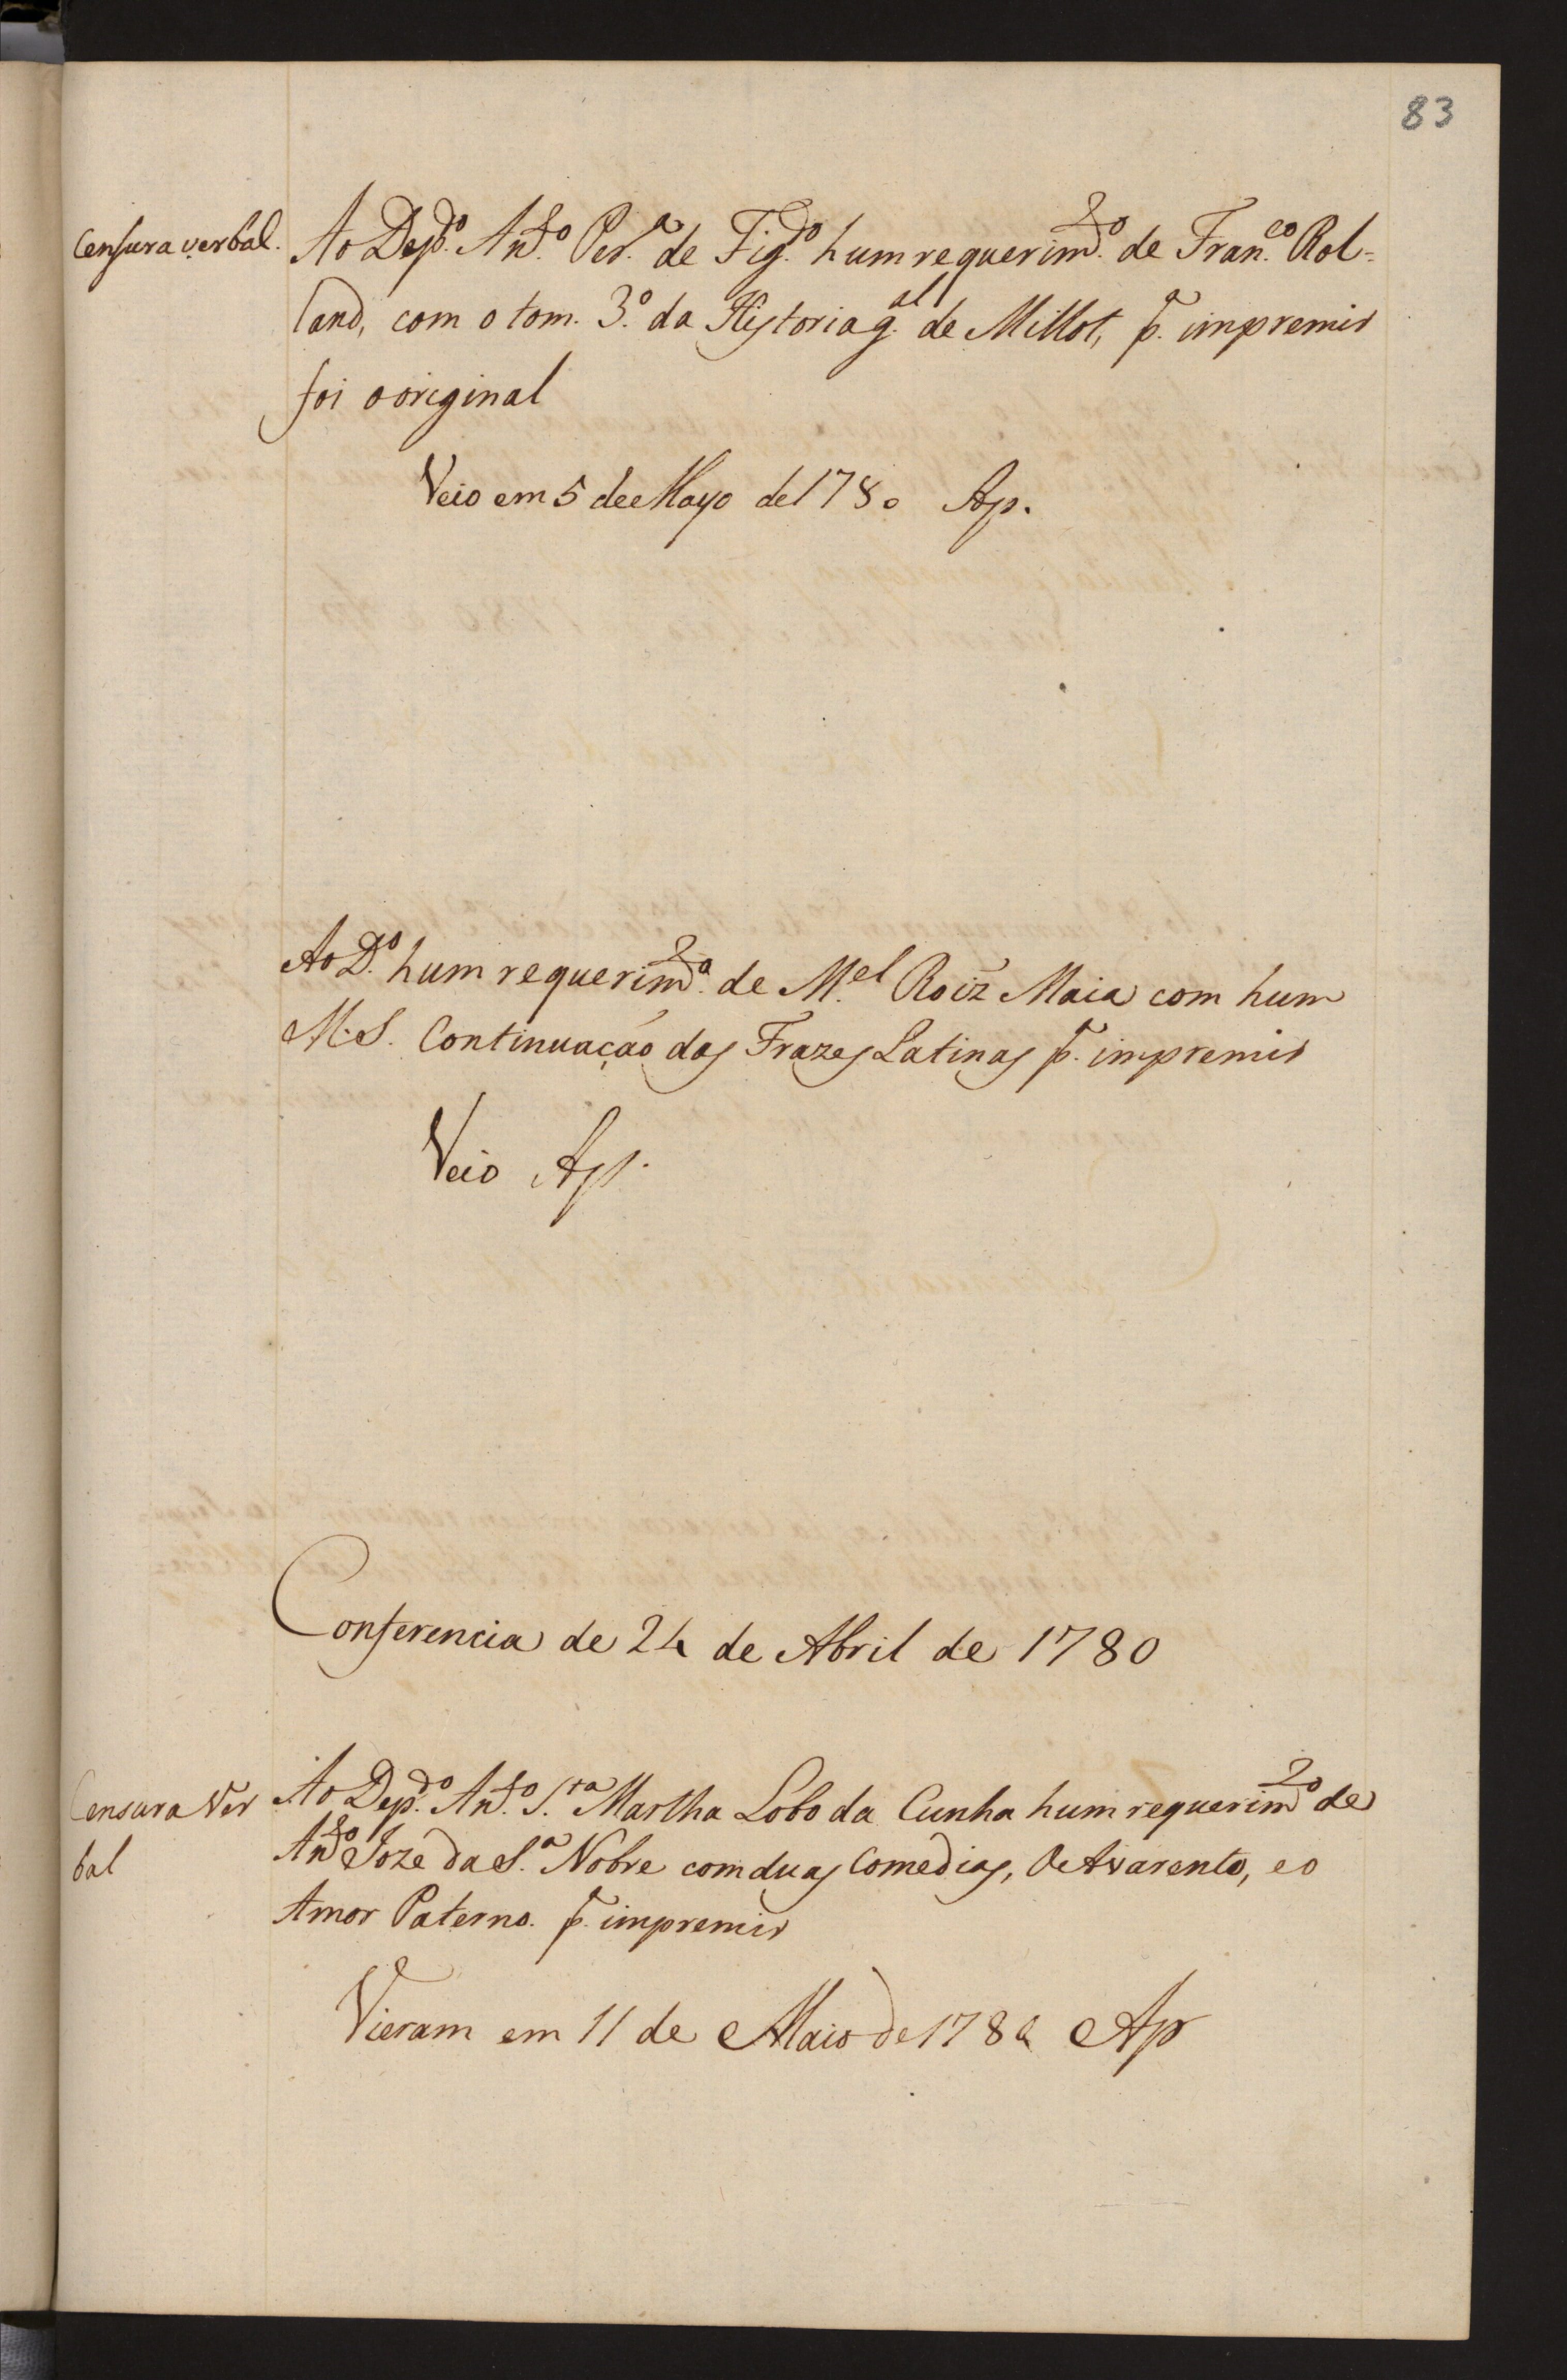 83
Censura verbal.
Ao Dep.do An.to Per.a de Fig.do hum requerim.to de Fran.co Rol=
land, com o tom. 3.o da Historia g.al de Millot, p.a impremir
foi o original
Veio em 5 de Mayo de 1780 Ap.
Ao D.o hum requerim.to de M.el Roiz Maia com hum
M.S. Continuação das Frazes Latinas p.a impremir
Veio Ap.
Conferencia de 24 de Abril de 1780
Censura Ver
bal
Ao Dep.do An.to S.ta Martha Lobo da Cunha hum requerim.to de
An.to Joze da S.a Nobre com duas Comedias, O Avarento, e o
Amor Paterno. p.a impremir
Vieram em 11 de Maio de 1780 Ap